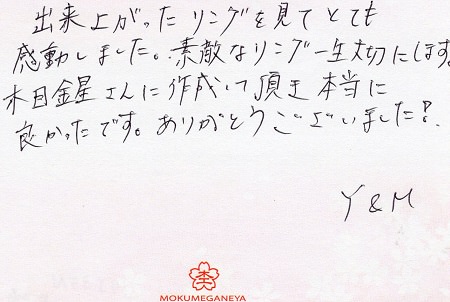 出来上がったリングを見てとても
感動しました。素敵なリング一生大切にします
木目金屋さんに作成して頂き本当に
良かったです。ありがとうございました!
Y & M
MOKUMEGANEYA